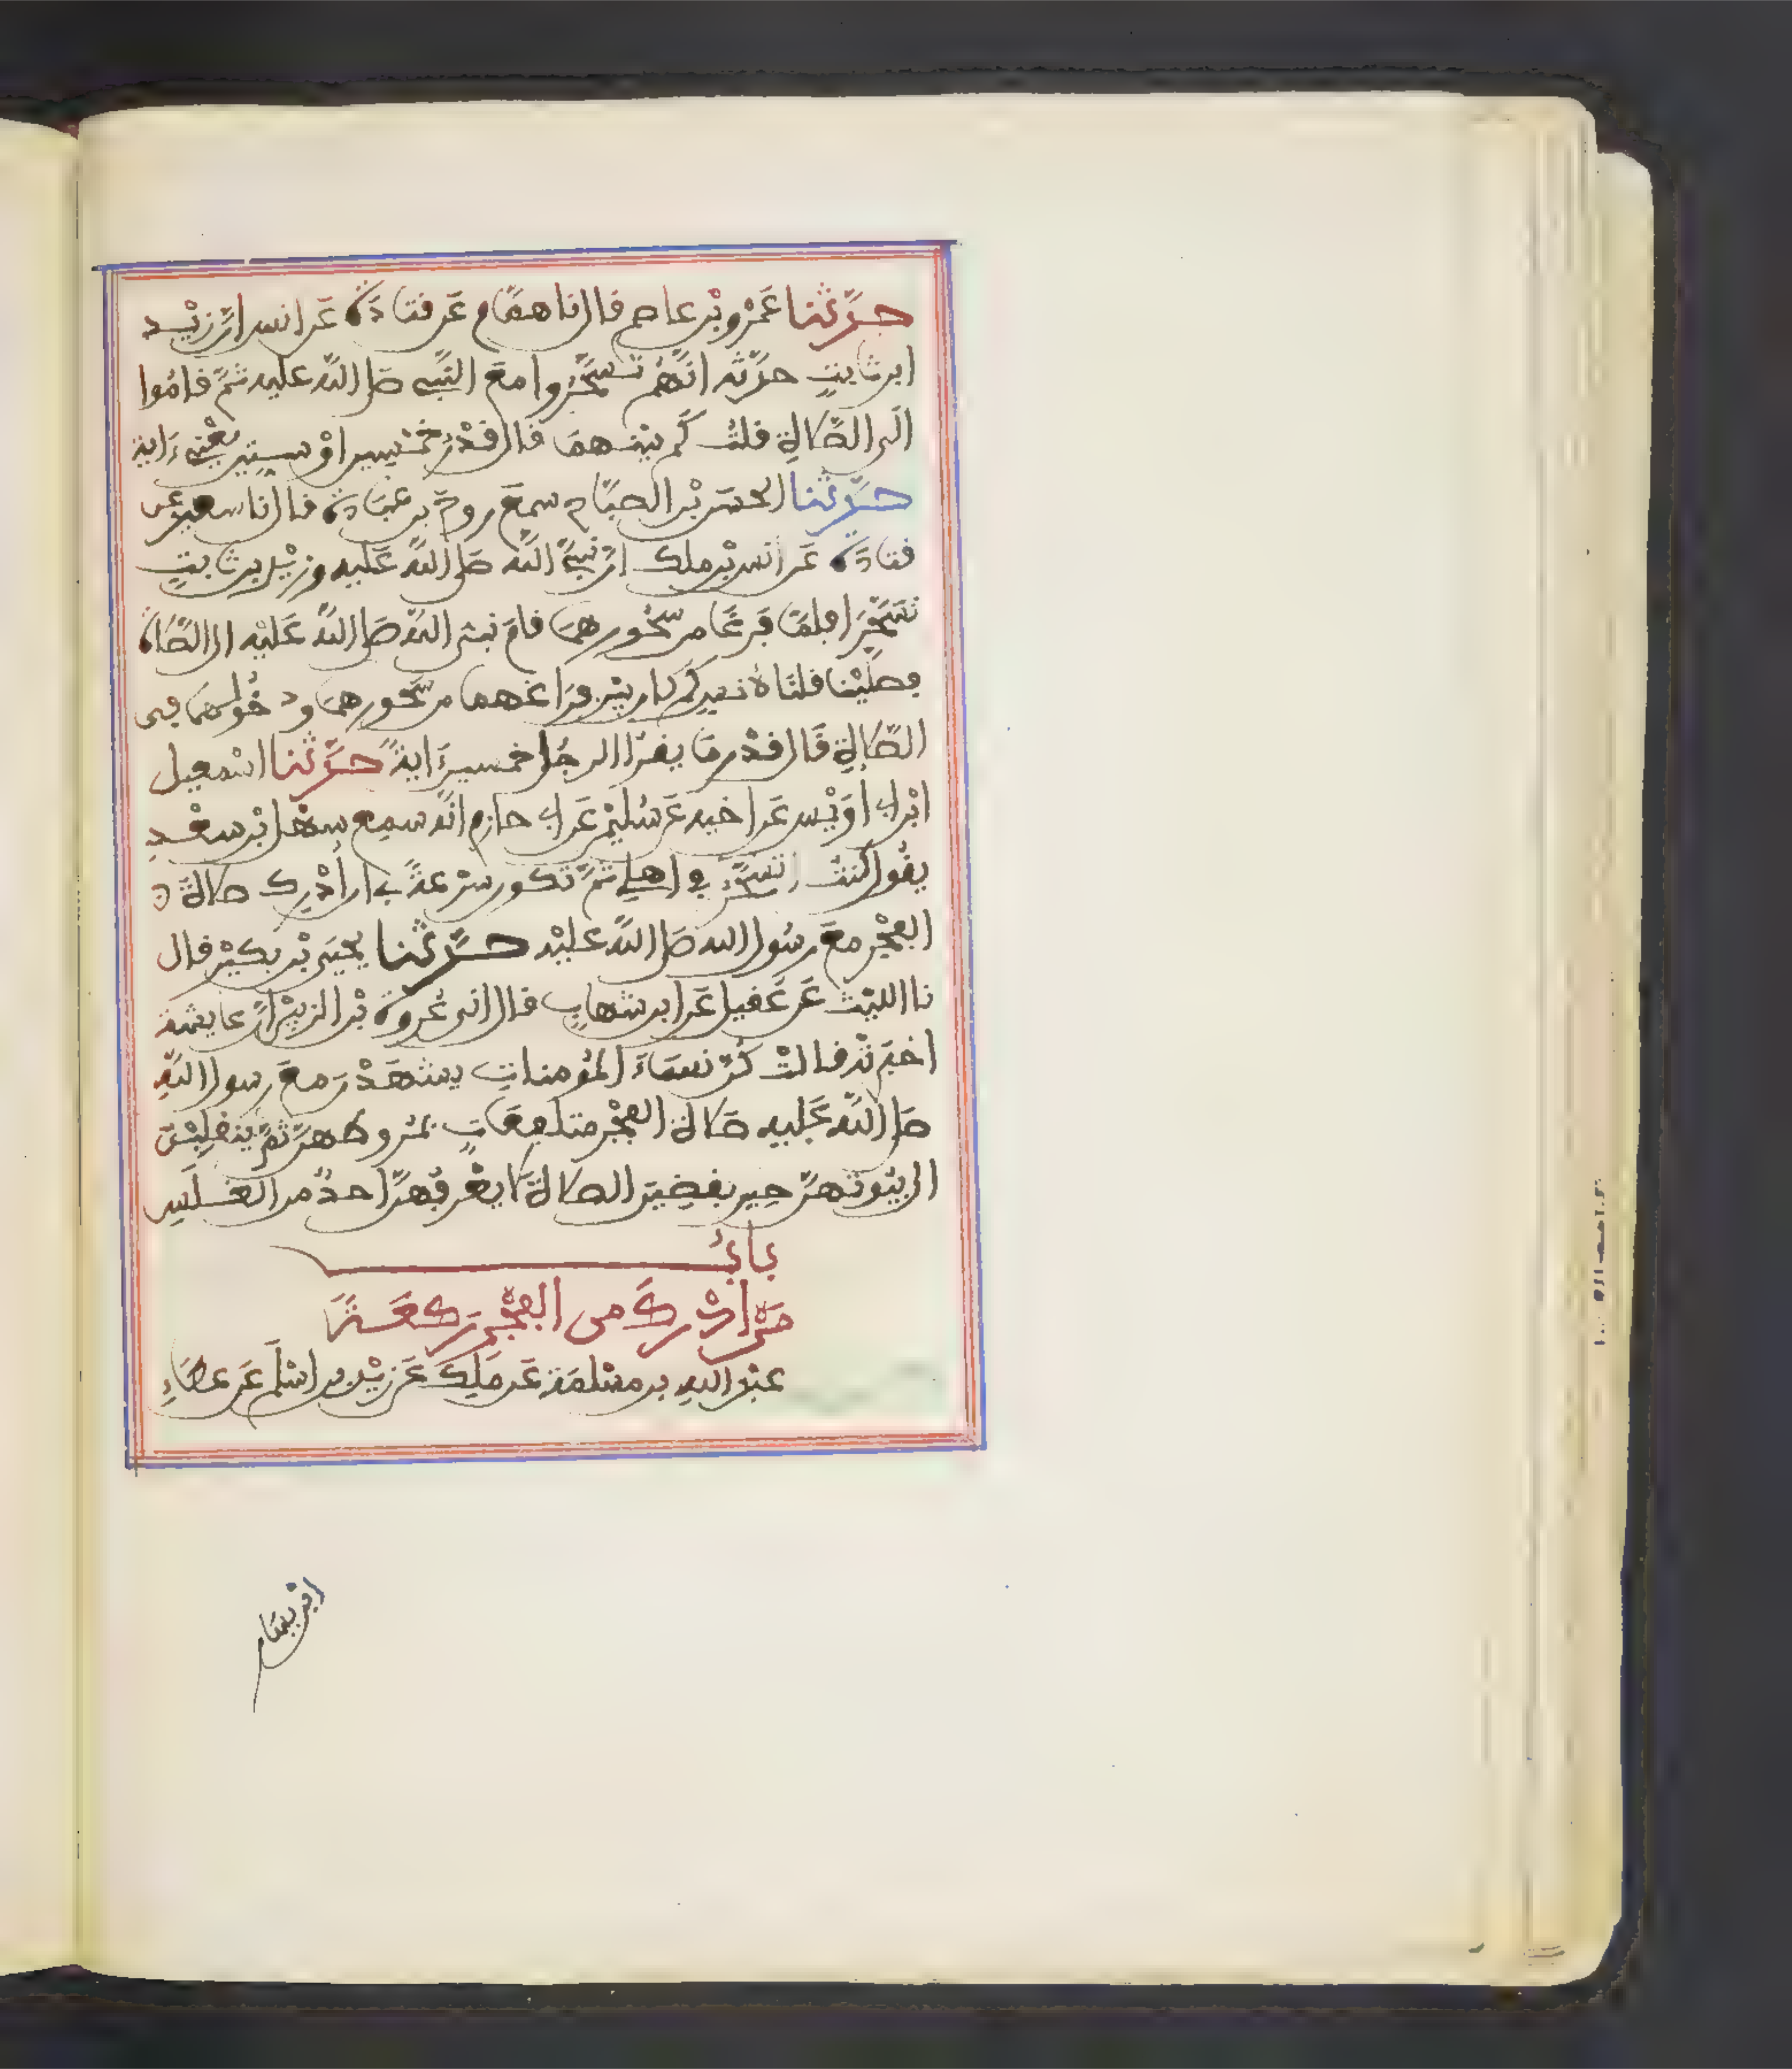 حَدَّثنا عَمْرُو بْن عاصم قال نا همَّام عَن قتادَة عَن انس ان زيْد
ابن ثابتٍ حدَّثه انَّهُم تسَحَّرُوا معَ النَّبي صلى اللَّه عليه ثمَّ قامُوا
الى الصَّلاةِ قلتُ كَم بيْنهمَا قال قدْرُ خمْسين اوْ ستين يَعْني ءَاية
حَدَّثنا الحسَن بْن الصبَّاح سمعَ روحَ بن عُبَادة قال نا سعيد عن
قتادَة عَن انس بْن ملك انَّ نبيَّ اللَّه صلى اللَّه عَليه وزيْد بن ثابتٍ
تسَحَّرَا فلمَّا فرغَا من سَّحُورهمَا قامَ نبي اللَّه صَلى اللَّه عَليْه الى الصَّلاة
فصَلَّيْنا قلنَا لانس كم كان بيْن فرَاغهما من سَّحُورهمَا ودخُولهمَا في
الصَّلاةِ قَال قدْر مَا يقرَأ الرجُل خمسين ءَايةً حَدَّثنا اسْمعيل
ابْن ابي أوَيْس عَن اخيه عَن سُليْمن عَن ابي حازم انَّه سمِع سهْل ابْن سعْدٍ
يقُول كنتُ اتسَحَّر في اهلي ثمَّ تكون سرْعةً بي ان أدْرك صلاةَ
الفجْر معَ رسُول الله صَلى اللَّه عليْه حَدَّثنا يحيَى بْن بكيْر قال
نا الليْث عَن عُقيل عَن ابن شهابٍ قال اني عُروة بْن الزبيْر انَّ عايشة
اخبَرتْه قالتْ كُنّ نسَاءُ المُومناتِ يشْهَدْن مَعَ رسول اللَّهِ
صَلى اللَّه عَليه صَلاةَ الفجْر متلفعَاتٍ بمُروطهنَّ ثمَّ ينقلِبْنَ
الى بيُوتهنَّ حِين يقضِيَن الصلاةَ لا يعْرفُهنَّ احدٌ من الغَلَسِ
بابُ
مَنْ ادْرك من الفَجْر ركعَةً
عبْد اللهِ بن مسْلمَة عَن مَلِك عَن زيْد بن اسْلَم عَن عطَاءِ